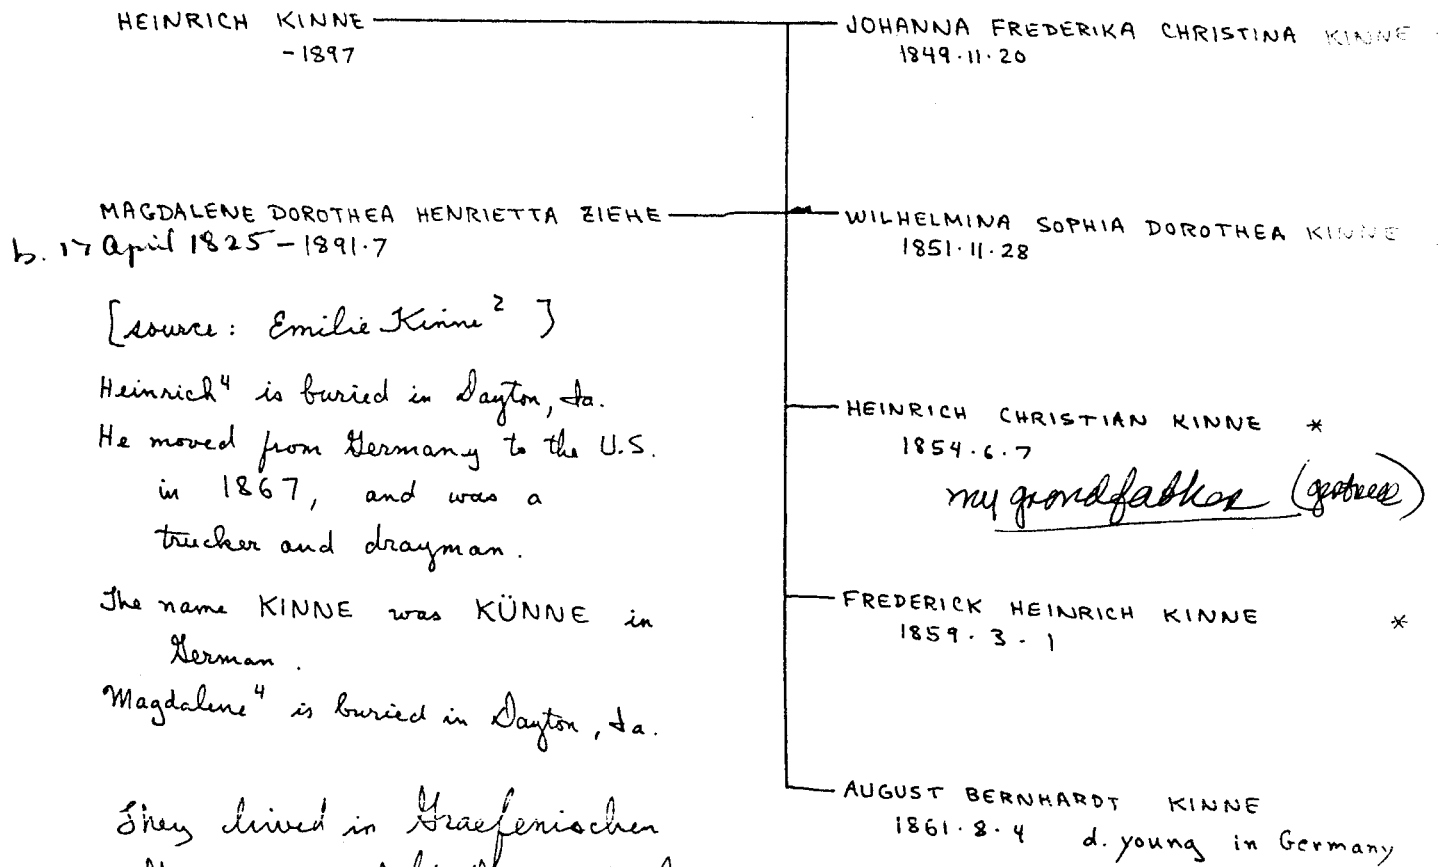 HEINRICH KINNE
-1897
MAGDALENE DOROTHEA HENRIETTA ZIEHE
b. 17 April 1825-1891.7
[source: Emilie Kinne²]
Heinrich⁴ is buried in Dayton, Ia.
He moved from Germany to the U.S.
in 1867, and was a
trucker and drayman.
The name KINNE was KÜNNE in
German.
Magdalene⁴ is buried in Dayton, Ia.
They lived in Graefenischen
JOHANNA FREDERIKA CHRISTINA KINNE
1849.11.20
WILHELMINA SOPHIA DOROTHEA KINNE
1851.11.28
HEINRICH CHRISTIAN KINNE *
1854.6.7
my grandfather
FREDERICK HEINRICH KINNE *
1859.3.1
AUGUST BERNHARDT KINNE
1861.8.4 d. young in Germany